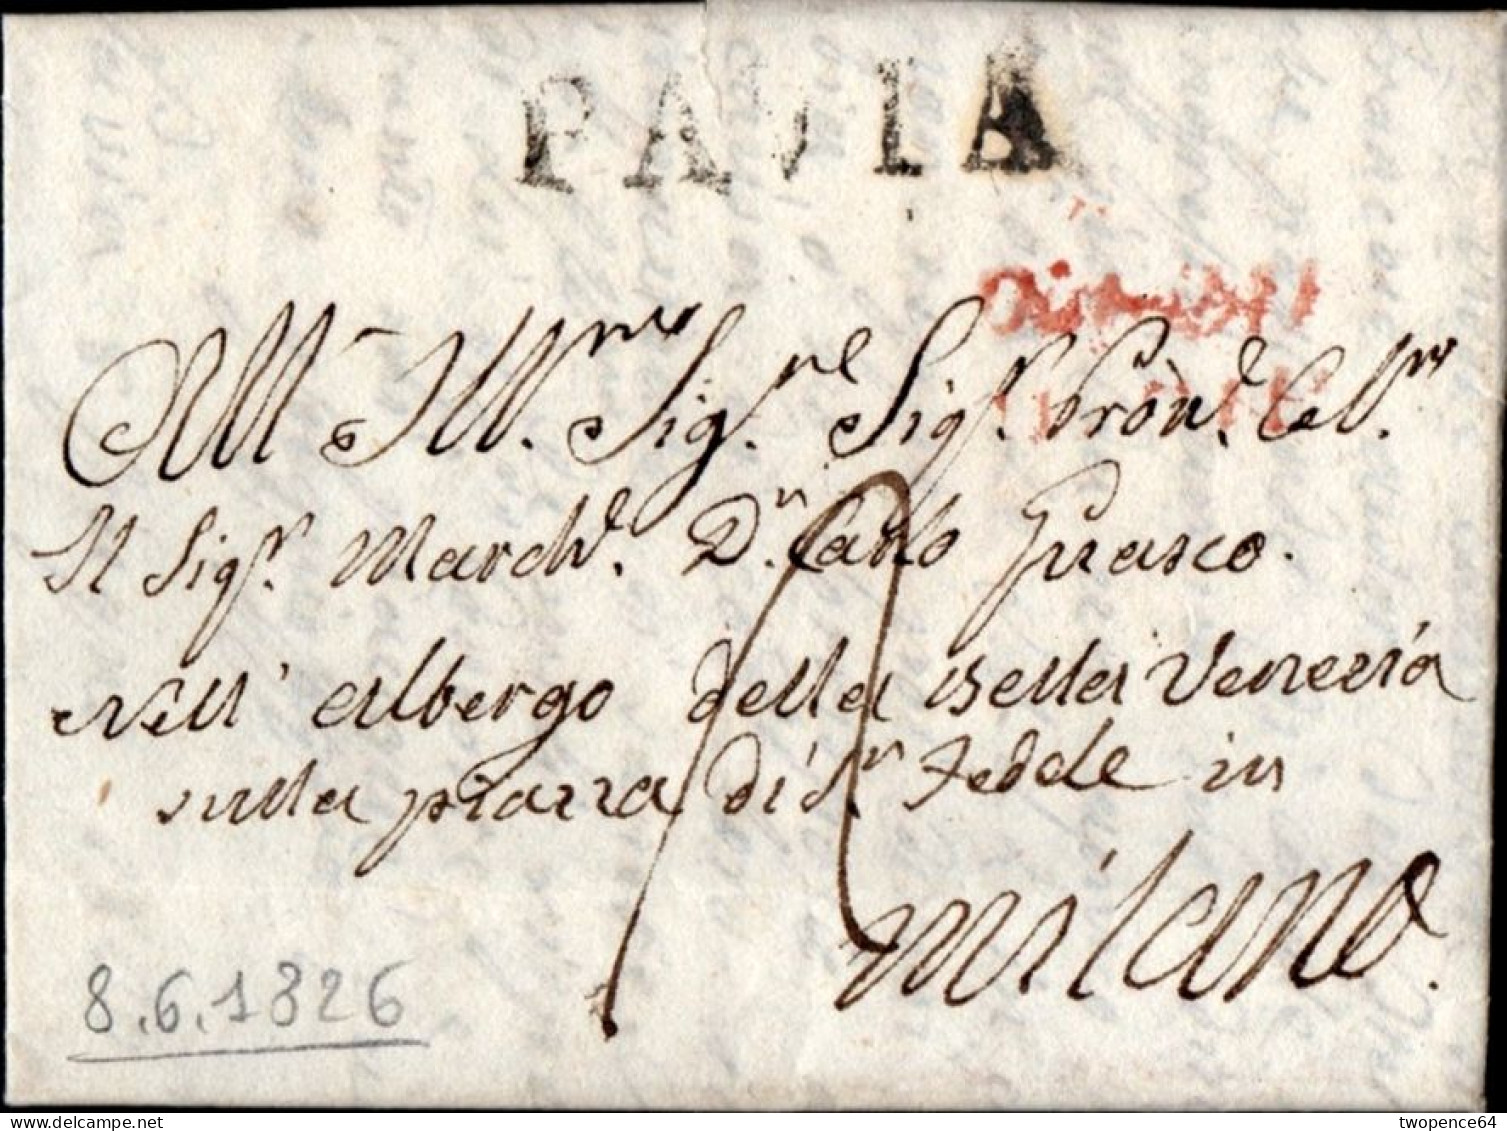 PAVIA
All' Ill.mo Sig.re Sig.r Pròn.e Coll.mo
Il Sig.r March.e D.n Carlo Guasco.
Nell' albergo della Bella Venezia
sulla piazza di S.n Fedele in
Milano.
8.6.1826
twopence64